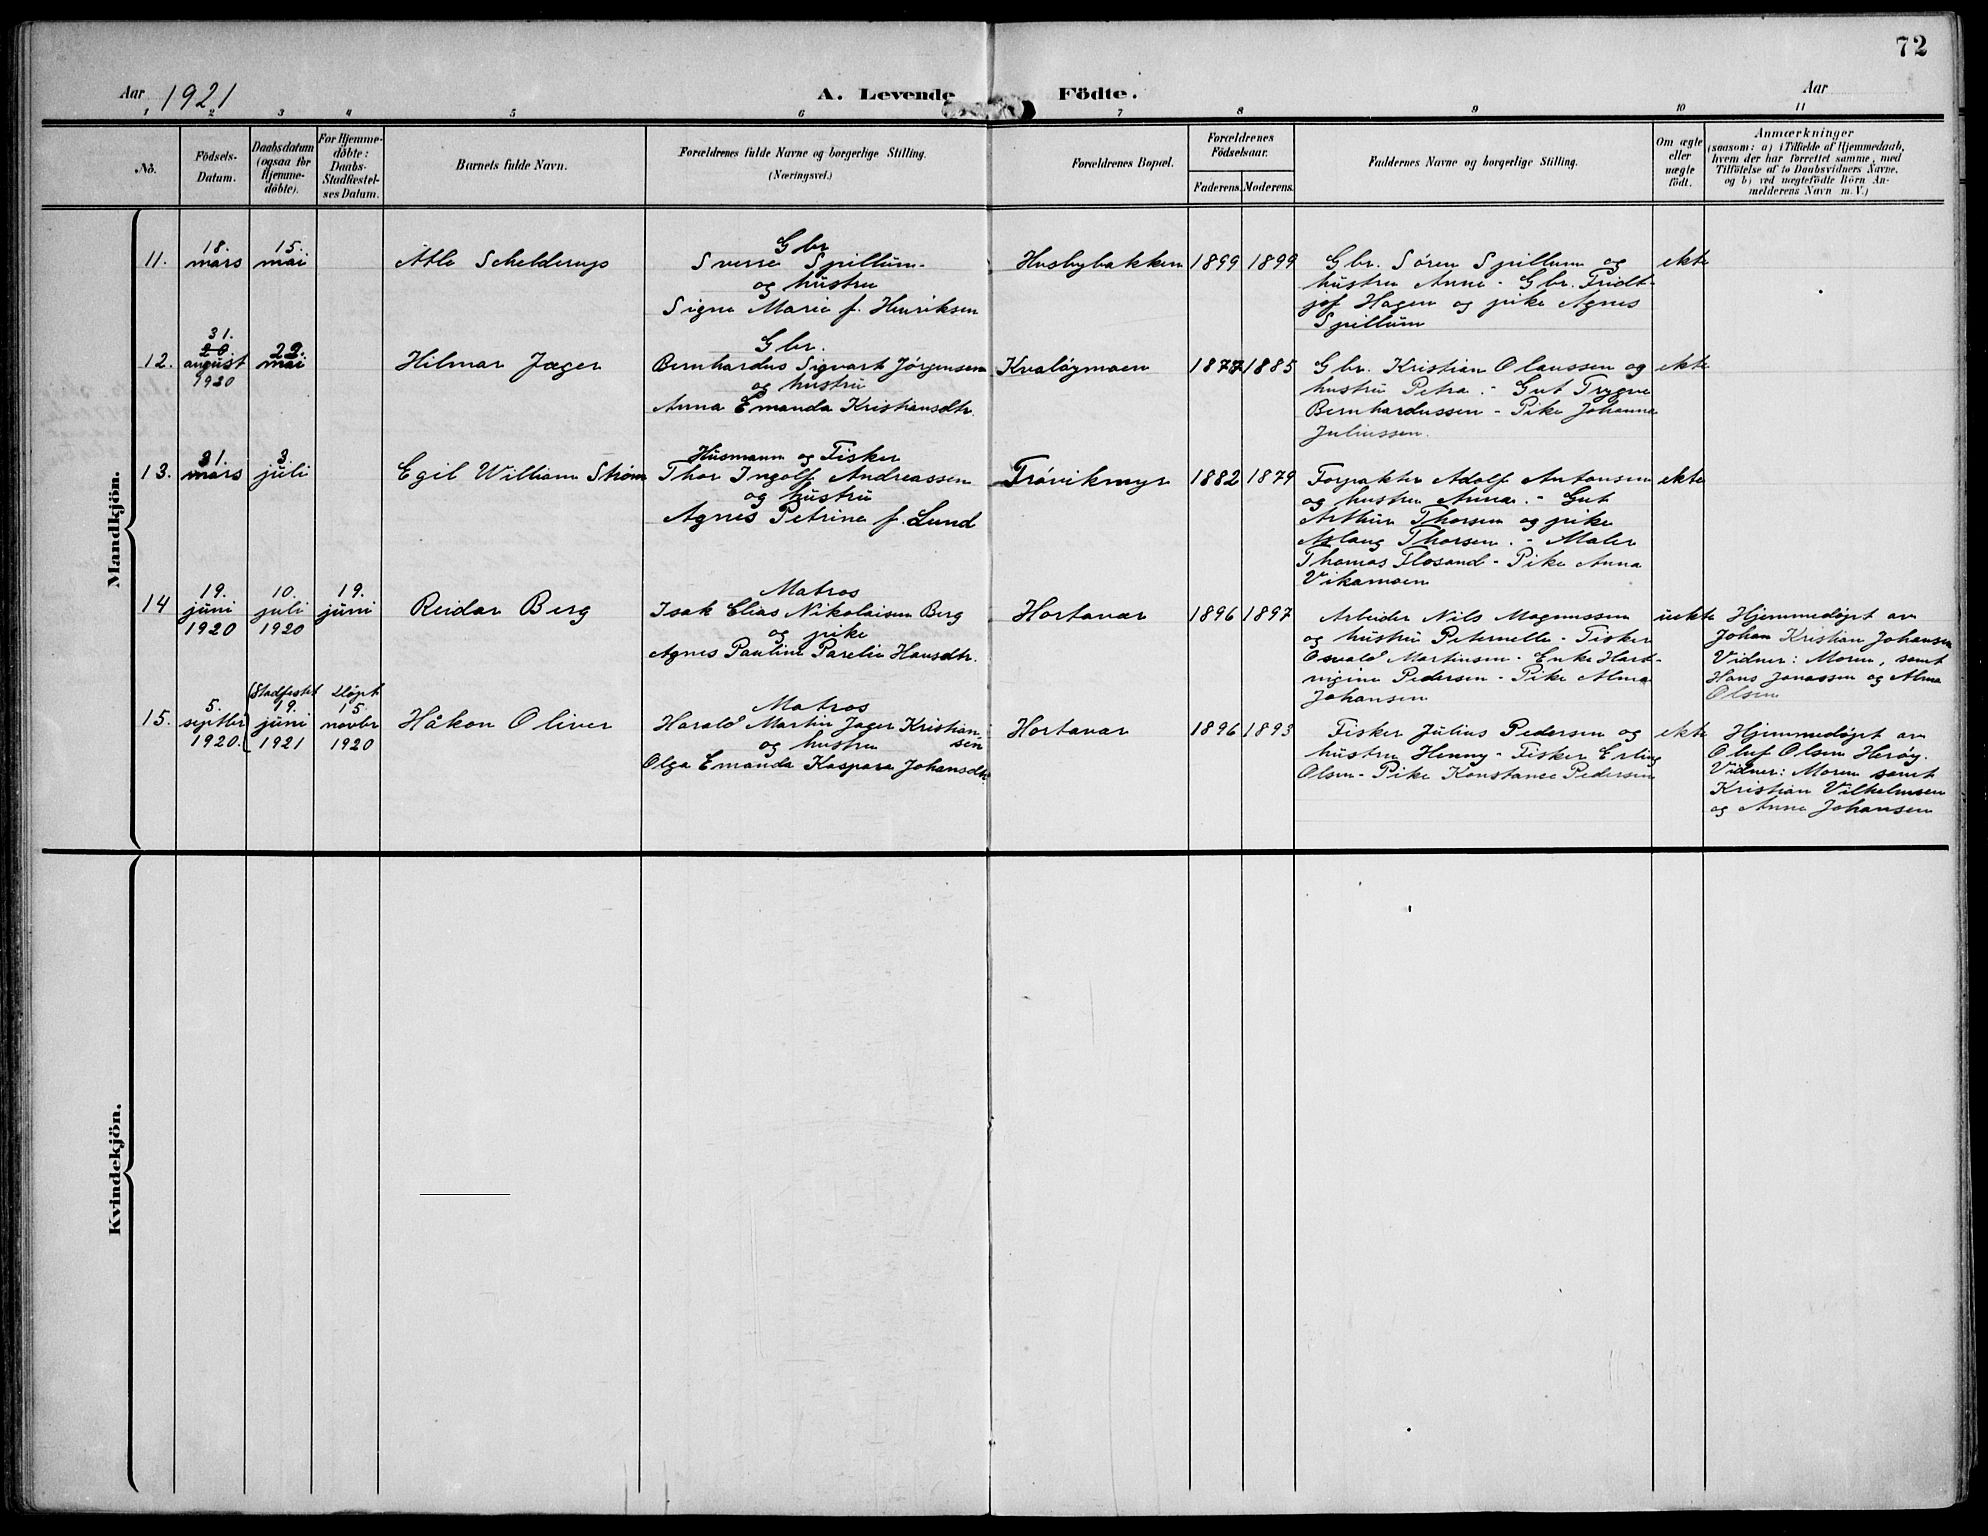 72
Aar 1921
A. Levende Födte.
Aar
1 2 3 4 5 6 7 8 9 10 11
No.
Födsels-
Datum.
Daabsdatum
(ogsaa for
Hjemme-
döbte).
For Hjemme-
döbte:
Daabs-
Stadfæstel-
ses Datum.
Barnets fulde Navn.
Forældrenes fulde Navne og borgerlige Stilling.
(Næringsvei.)
Forældrenes Bopæl.
Forældrenes
Födselsaar.
Faderens. Moderens.
Faddernes Navne og borgerlige Stilling.
Om ægte
eller
uægte
födt.
Anmærkninger
(saasom: a) i Tilfælde af Hjemmedaab,
hvem der har forrettet samme, med
Tilföielse af to Daabsvidners Navne,
og b) ved uægtefödte Börn An-
melderens Navn m. V.)
Mandkjön.
11.
18.
mars
15.
mai
Atle Schelderup
Gbr
Sverre Spillum
og hustru
Signe Marie f. Henriksen
Husbybakken
1899 1899
Gbr. Sören Spillum og
hustru Anne - Gbr. Fridt-
jof Hagen og pike Agnes
Spillum
ekte
12.
31.
20
august
1920
22.
mai
Hilmar Jæger
Gbr.
Bernhardus Sigvart Jørgensen
og hustru
Anna Emanda Kristiansdtr.
Kvaløymoen
1877 1885
Gbr. Kristian Olaussen og
hustru Petra - Gut Trygve
Bernhardussen - Pike Johanna
Juliussen.
ekte
13.
31.
mars
3.
juli
Egil William Strøm
Husmann og Fisker
Thor Ingolf Andreassen
og hustru
Agnes Petrine f. Lund
Frøvikmyr
1882 1879
Forpakter Adolf Antonsen
og hustru Anna. - Gut
Arthur Thorsen og pike
Aslaug Thorsen. - Maler
Thomas Flosand - Pike Anna
Vikamoen
ekte
14
19.
juni
1920
10.
juli
1920
19.
juni
Reidar Berg
Matros
Isak Elias Nikolaisen Berg
og pike
Agnes Pauline Parelie Hansdtr.
Hortavær
1896 1897
Arbeider Nils Magnussen
og hustru Peternelle - Fisker
Osvald Martinsen - Enke Hart-
vigine Pedersen - Pike Alma
Johansen
uekte
Hjemmedøpt av
Johan Kristian Johansen
Vidner: Moren, samt
Hans Jonassen og Alma
Olsen
15.
5.
septbr
1920.
(Stadfestet
19.
juni
1921
Døpt
15.
novbr
1920
Håkon Oliver
Matros
Harald Martin Jager Kristian-
og hustru sen
Olga Emanda Kaspara Johansdtr.
Hortavær
1896 1893
Fisker Julius Pedersen og
hustru Henny - Fisker Erling
Olsen - Pike Konstanse Pedersen
ekte
Hjemmedøpt av
Oluf Olsen Herøy.
Vidner: Moren samt
Kristian Vilhelmsen
og Anne Johansen
Kvindekjön.